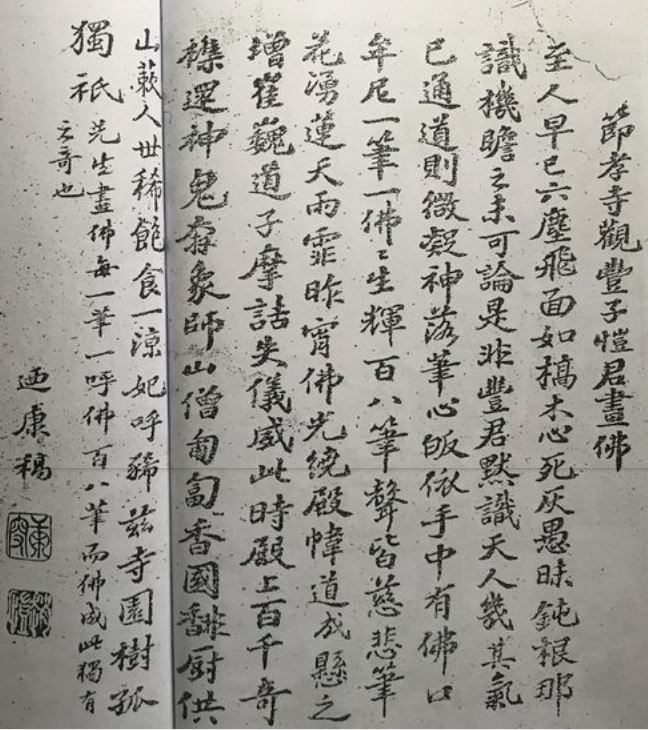 節孝寺觀豐子愷君畫佛
至人早已六塵飛面如槁木心死灰愚昧鈍根那
識機瞻之未可論是非豐君默識天人幾其氣
已通道則微凝神落筆心皈依手中有佛口
牟尼一筆一佛〻生輝百八筆聲皆慈悲筆
花湧蓮天雨霏昨宵佛光繞殿幃道成懸之
增崔巍道子摩詰失儀威此時殿上百千奇
神鬼象師山僧匍匐香國厨供
山蔌人世稀飽食一涼妃呼豨茲寺園樹孤
獨祇先生畫佛每一筆一呼佛百八筆而佛成此獨有
之奇也
迺康稿